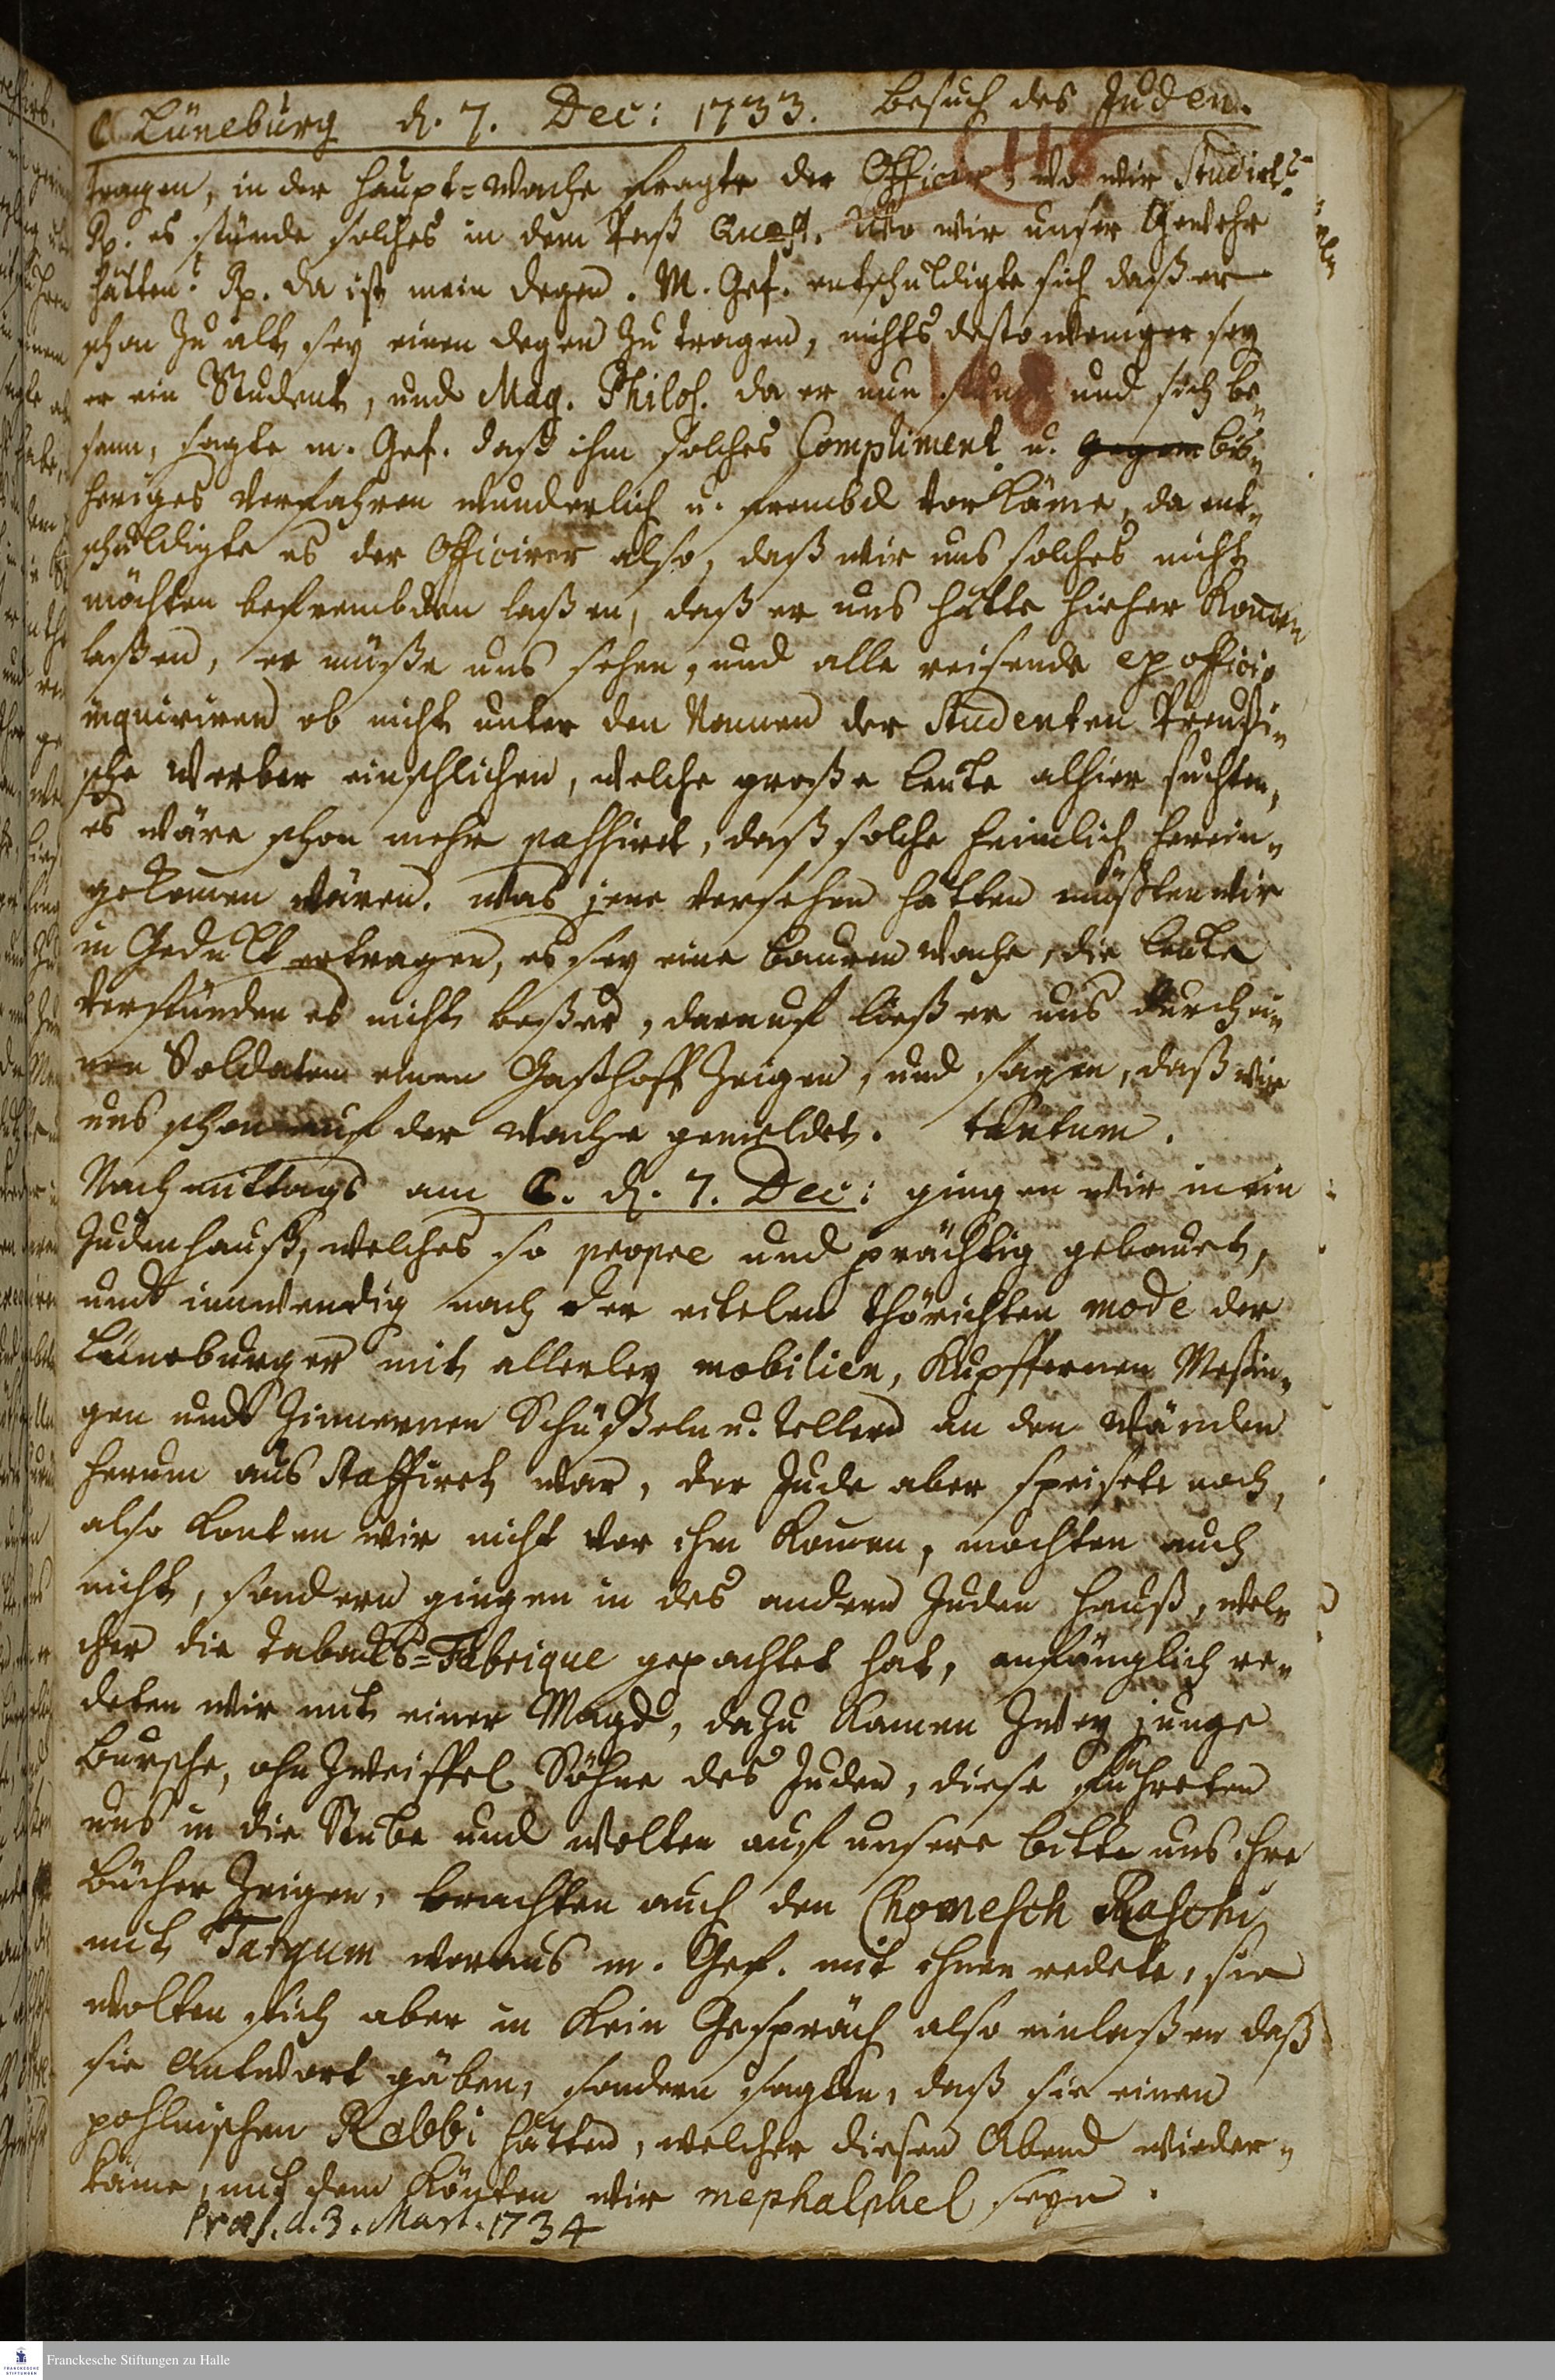 ☾ Lüneburg d. 7. Dec: 1733. Besuch des Juden.
118
tragen, in der Haupt-Wache fragte der Officier, wo wir Studirt?
Rp. es stünde solches in dem Paß Quæst. Wo wir unser Gewehr
hätten? Rp. da ist mein Degen. M. Gef. entschuldigte sich daß er
schon zu alt sey einen Degen zu tragen, nichts destoweniger sey
er ein Student, und Mag. Philos. da er nun stund und sich be„
sann, sagte m. Gef. daß ihm solches Compliment u. bis„
heriges Verfahren wunderlich u. frembd vorkäme, da ent„
schuldigte es der Officirer also, daß wir uns solches nicht
möchten befrembden laßen, daß er uns hätte hieher komen
laßen, er müße uns sehen, und alle reisende ex officio
inquiriren ob nicht unter den Namen der Studenten Preußi„
sche Werber einschlichen, welche große Leute alhier suchten,
es wäre schon mehr passiret, daß solche heimlich herein„
gekomen wären. Was jene versehen hätten müßten wir
in Gedult ertragen, es sey eine Bauren Wache, die Leute
verstünden es nicht beßer, darauf ließ er uns durch ei„
nen Soldaten einen Gasthoff zeigen, und sagen, daß wir
uns schon auf der Wache gemeldet. tantum.
Nachmittags am ☾. d. 7. Dec: gingen wir in ein
Judenhauß, welches so propre und prächtig gebauet,
und inwendig nach der eitelen thörichten mode der
Lüneburger mit allerley mobilien, Kupffernen Meßin„
gen und Zinnernen Schüßeln u. Tellern an den Wänden
herum aus staffiret war, der Jude aber speisete noch,
also konten wir nicht vor ihn komen, mochten auch
nicht, sondern gingen in des andern Juden Hauß, wel„
cher die Tabacks-Fabrique gepachtet hat, anfänglich re„
deten wir mit einer Magd, dazu kamen zwey junge
Bursche, ohn Zweiffel Söhne des Juden, diese führeten
uns in die Stube und wolten auf unsere Bitte uns ihre
Bücher zeigen, brachten auch den Chomesch Raschi
mit Targum woraus m. Gef. mit ihnen redete, sie
wolten sich aber in kein Gespräch also einlaßen daß
sie Antwort gäben, sondern sagten, daß sie einen
pohlnischen Rabbi hätten, welcher diesen Abend wieder„
käme, mit dem könten wir mephalphel seyn.
Præs. d. 3. Mart. 1734
FRANCKESCHE STIFTUNGEN
Franckesche Stiftungen zu Halle